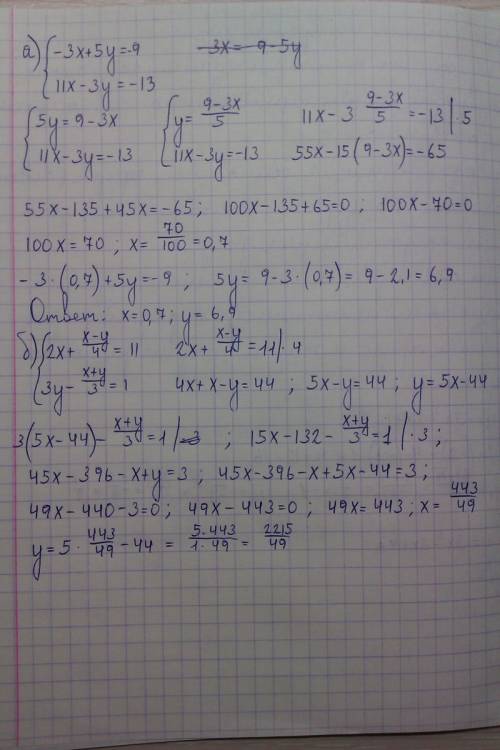 а) { -3x+5y=-9      3x= 9-5y
11x-3y=-13
{ 5y=9-3x   { y= (9-3x)/5   11x-3 (9-3x)/5 =-13 | ·5
11x-3y=-13   11x-3y=-13   55x-15(9-3x)=-65
55x-135+45x=-65; 100x-135+65=0; 100x-70=0
100x=70 ; x= 70/100 =0,7
-3·(0,7)+5y=-9 ; 5y= 9-3·(0,7)= 9-2,1=6,9
Ответ: x=0,7; y=6,9
б) { 2x+ (x-y)/4 = 11   2x+ (x-y)/4 =11 | ·4
3y- (x+y)/3 =1   4x+x-y=44 ; 5x-y=44 ; y=5x-44
3(5x-44)- (x+y)/3 =1 | ·3 ; 15x-132- (x+y)/3 =1 | ·3 ;
45x-396-x+y=3 ; 45x-396-x+5x-44=3 ;
49x-440-3=0; 49x-443=0 ; 49x=443 ; x= 443/49
y=5· 443/49 -44 = 5·443/1·49 = 2215/49